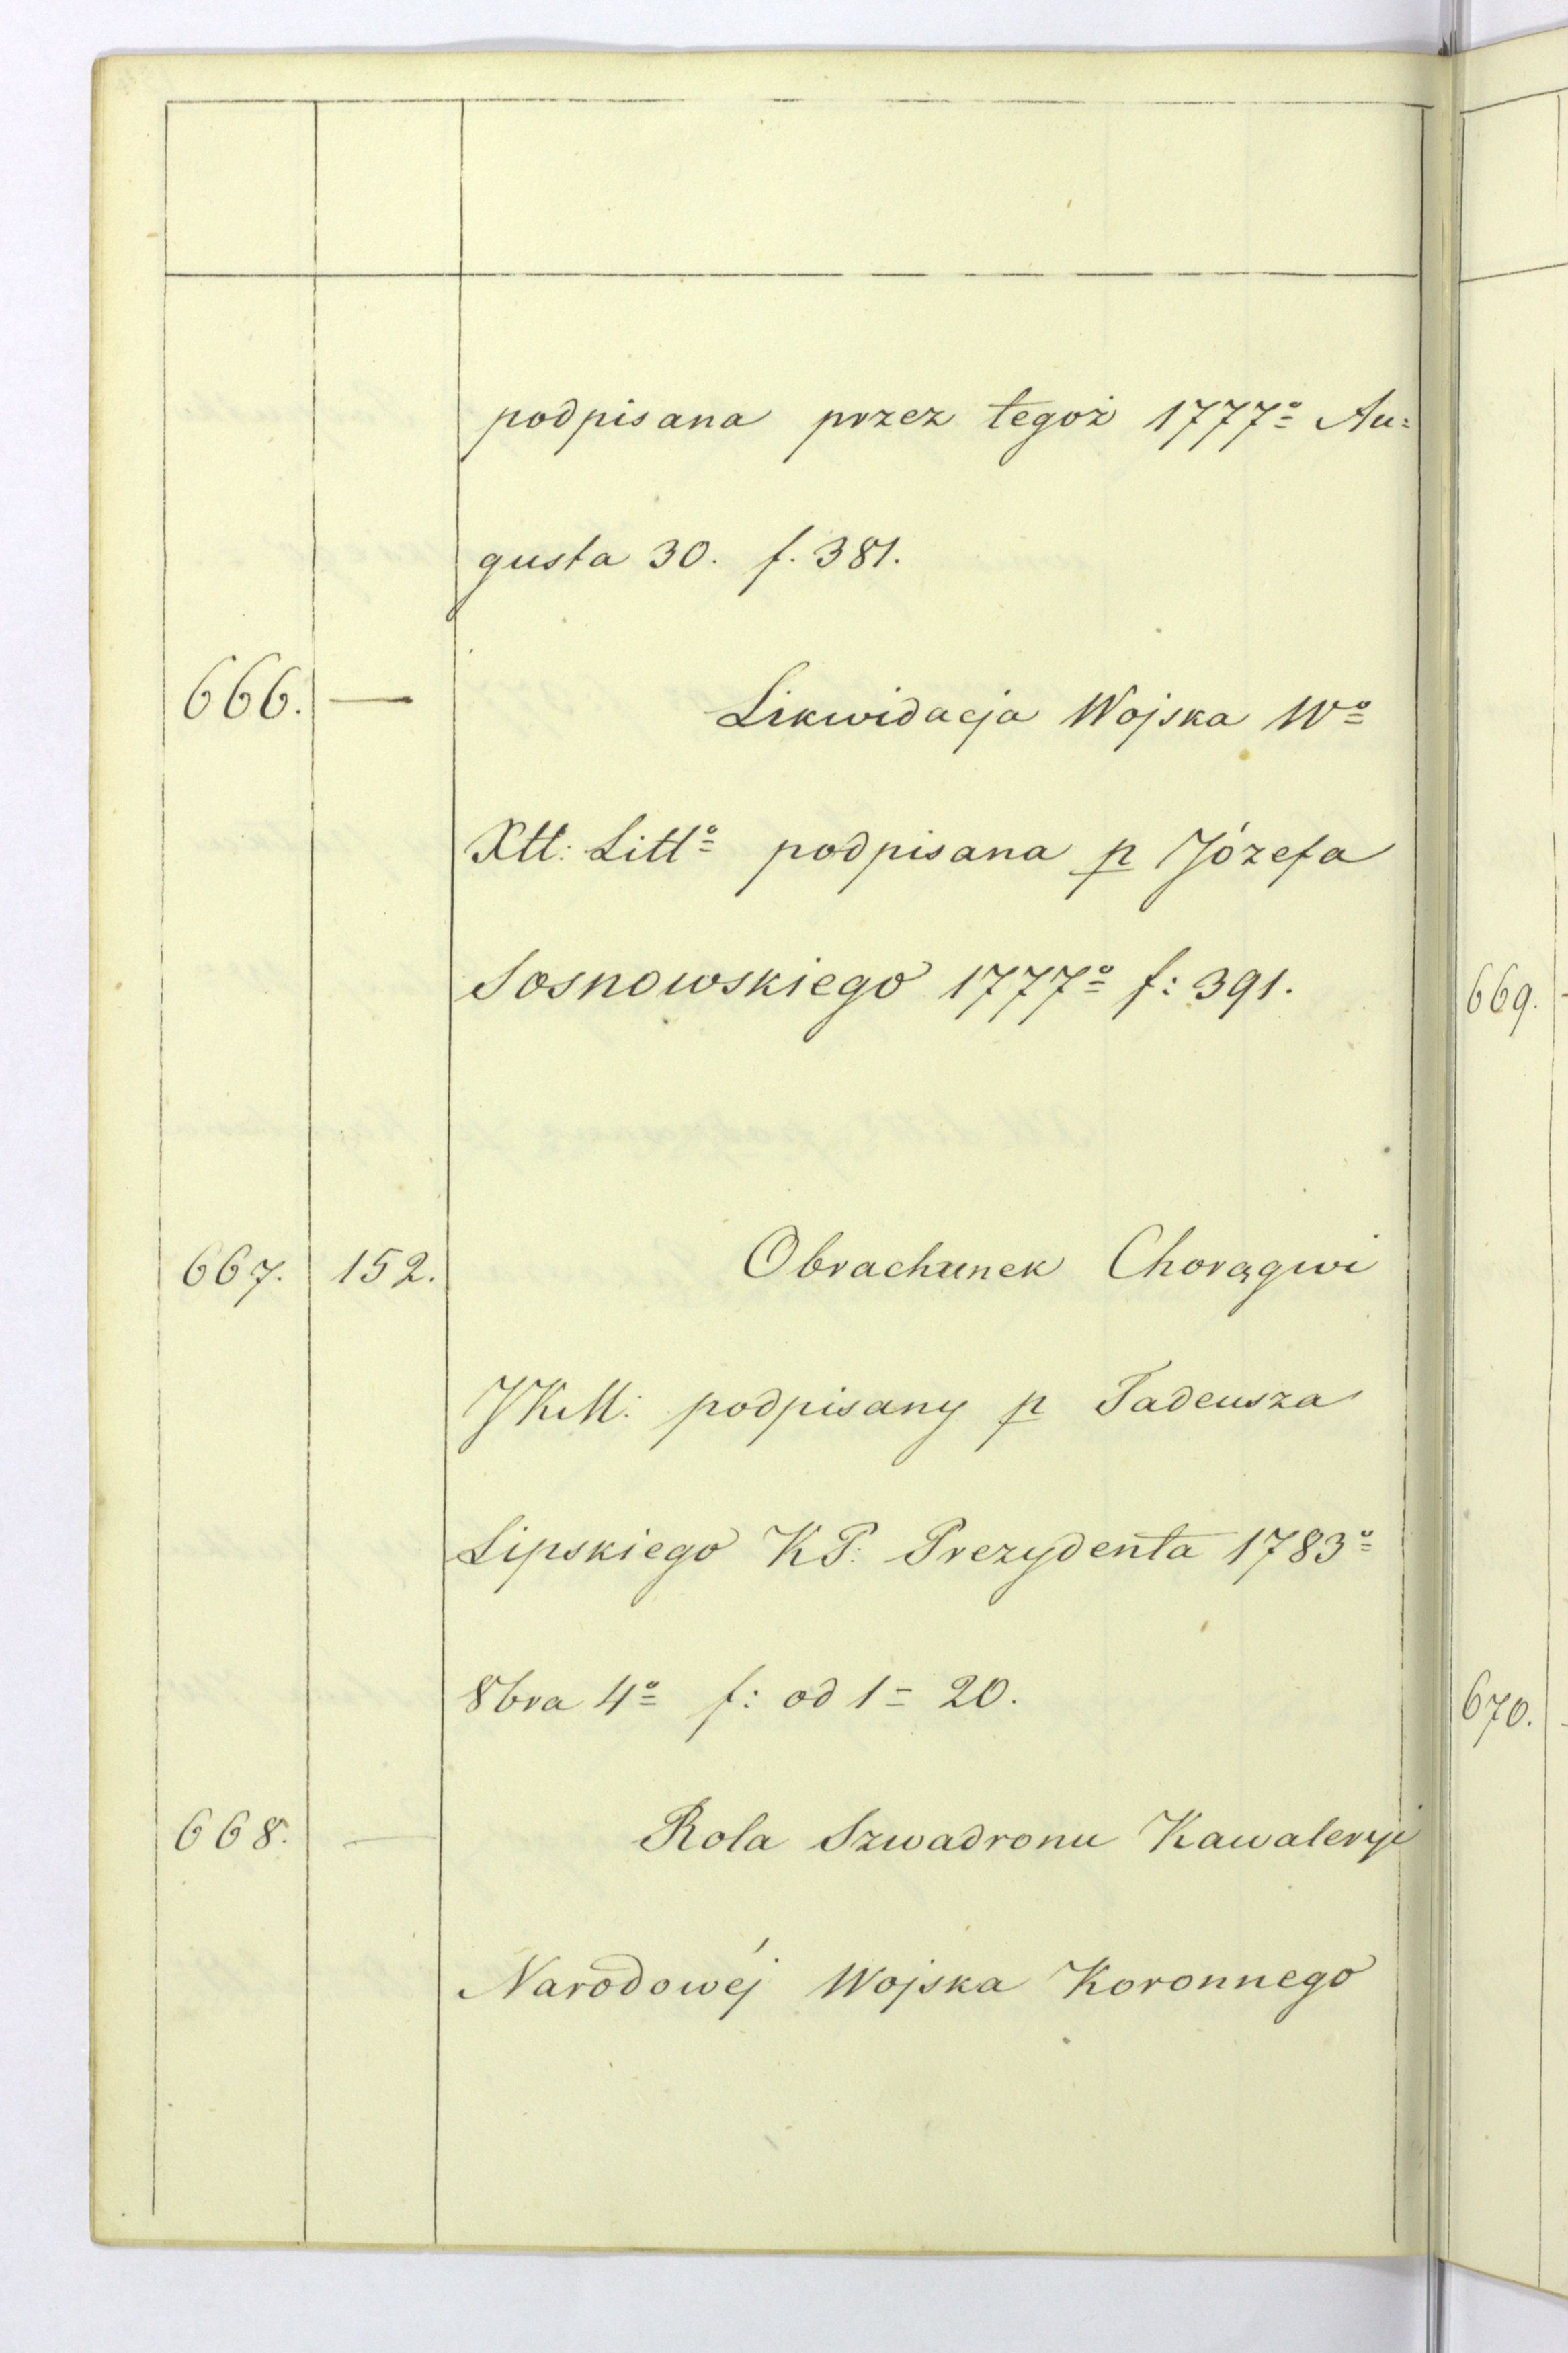 podpisana przez tegoż 1777º Au=
gusta 30. f. 381.
666. — Likwidacja Wojska Wº
Xtt: Littº podpisana p Józefa
Sosnowskiego 1777º f: 391.
667. 152. Obrachunek Chorągwi
JKM: podpisany p Tadeusza
Lipskiego KP: Prezydenta 1783º
8bra 4º f: od 1 = 20.
668. — Rola Szwadronu Kawaleryi
Narodowéj Wojska Koronnego
669.
670.